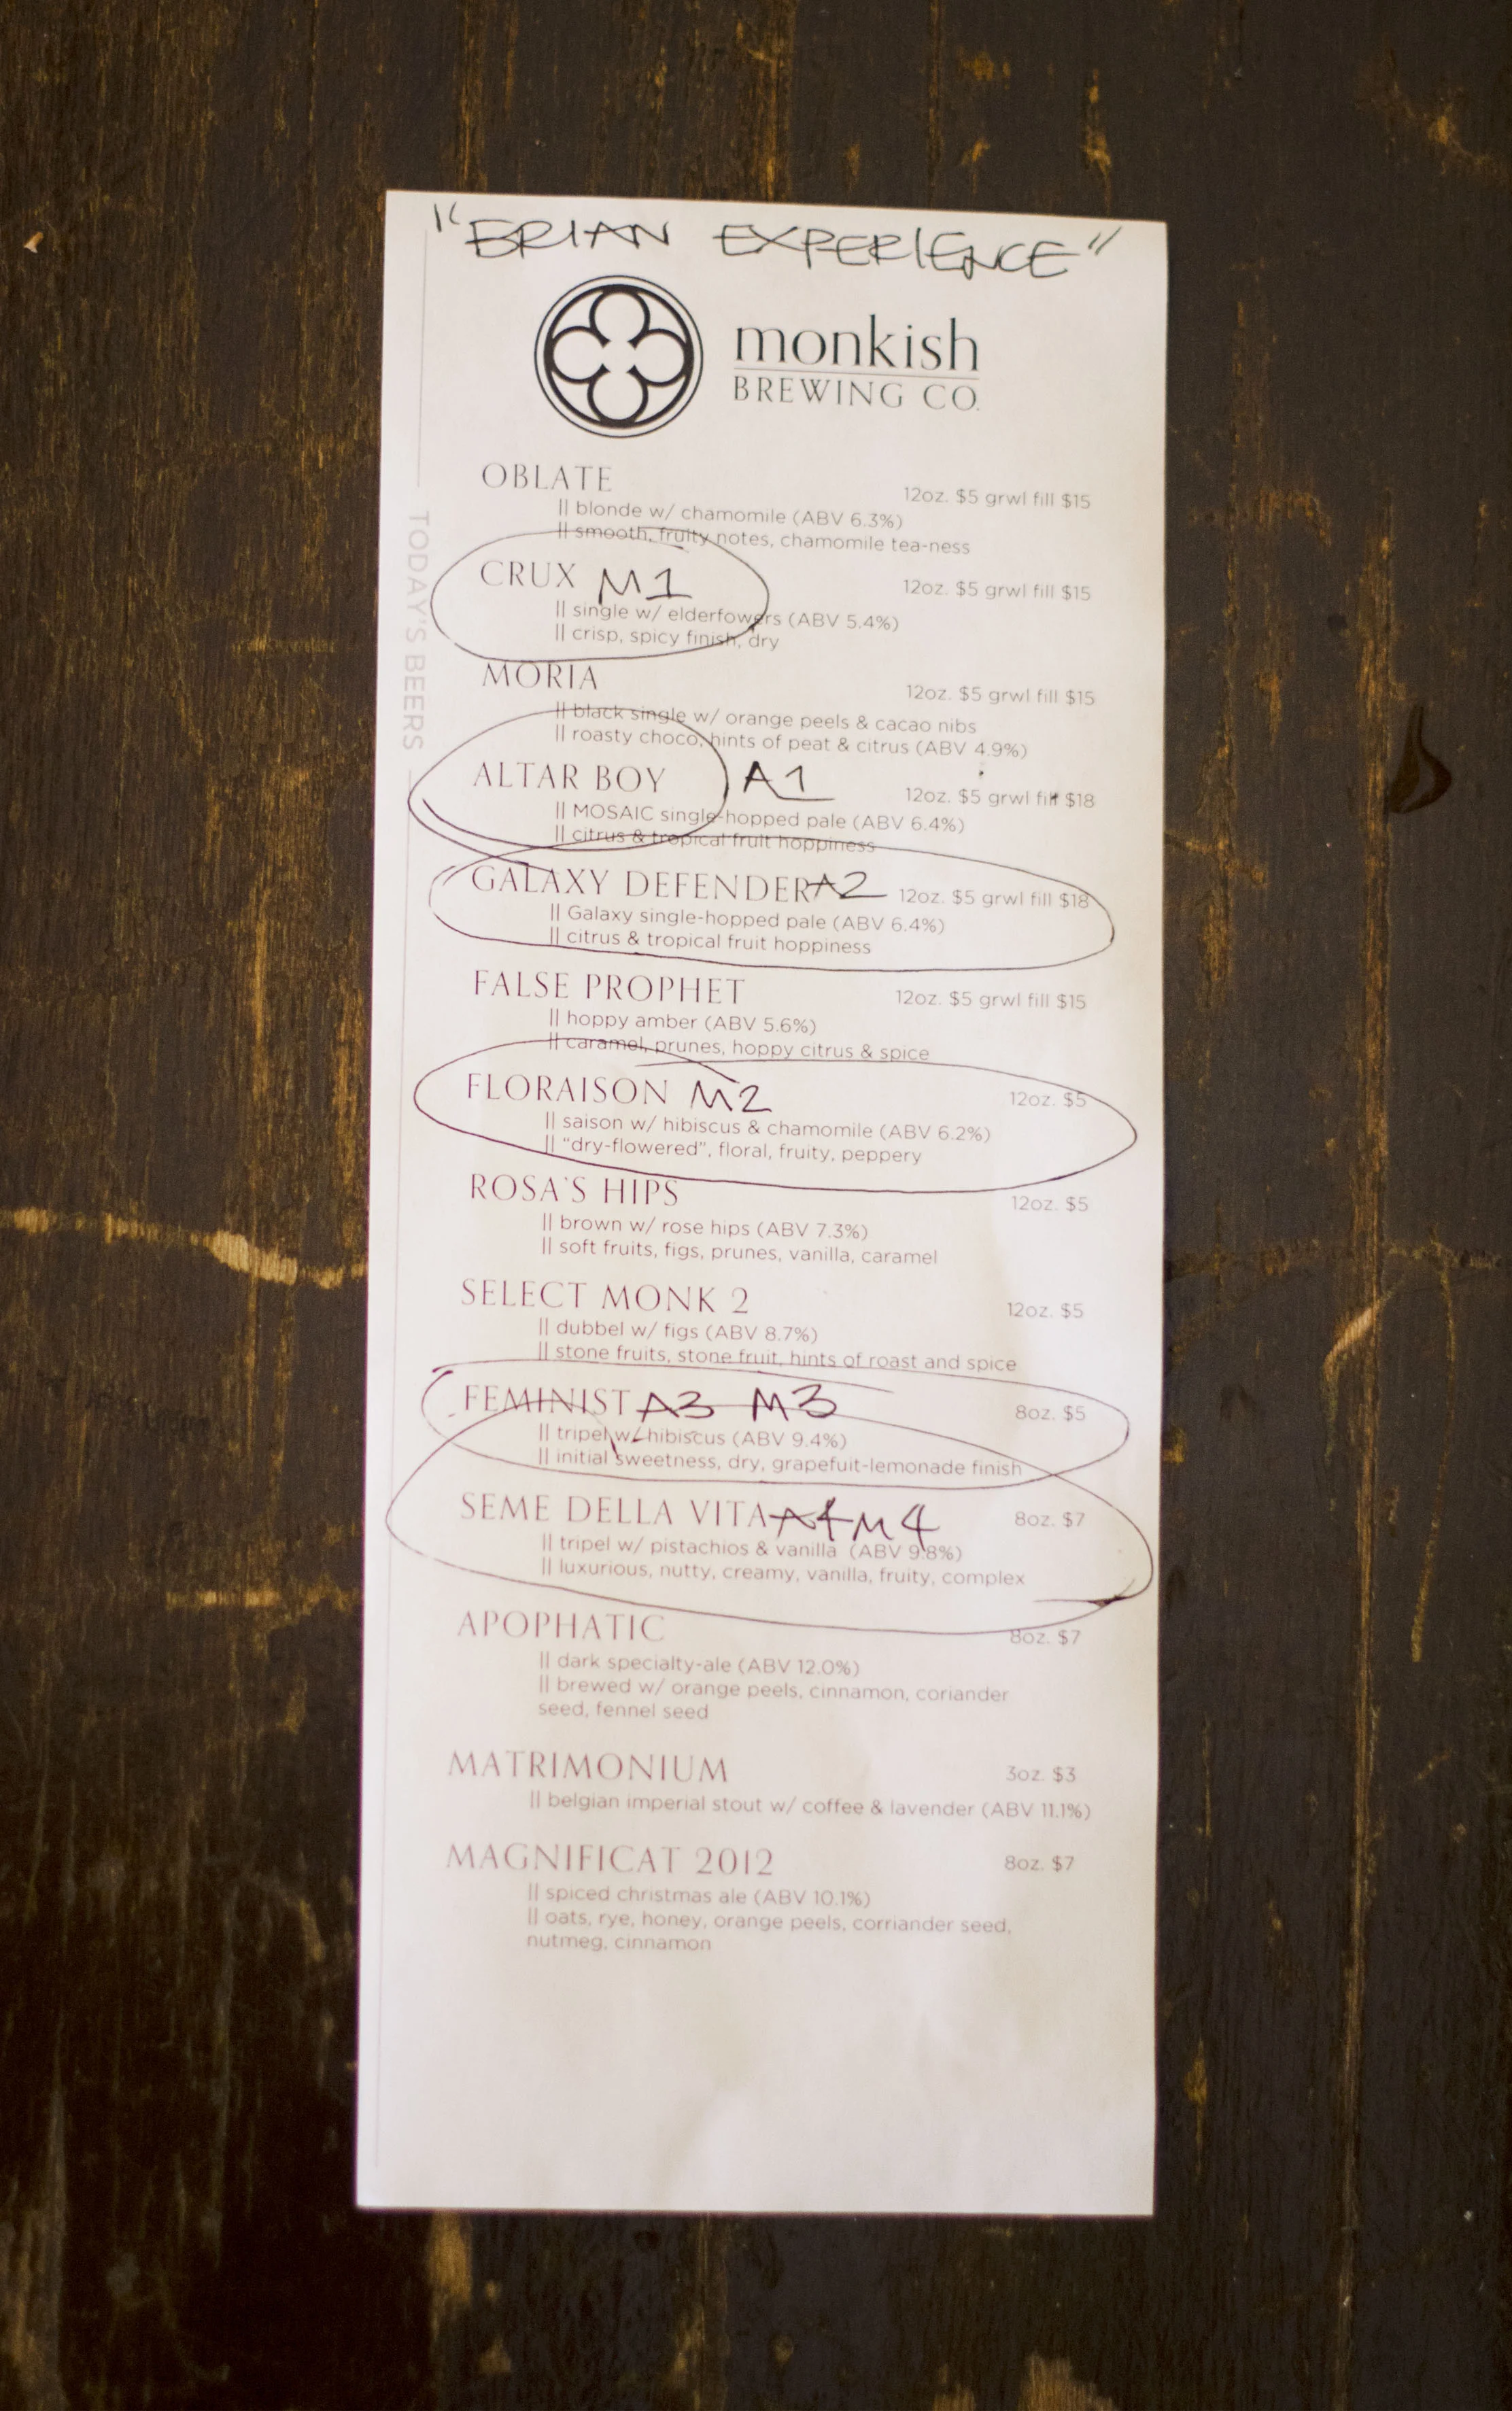 "BRIAN EXPERIENCE"
monkish
BREWING CO.
TODAY'S BEERS
OBLATE
12oz. $5 grwl fill $15
|| blonde w/ chamomile (ABV 6.3%)
|| smooth, fruity notes, chamomile tea-ness
CRUX M1
12oz. $5 grwl fill $15
|| single w/ elderfowers (ABV 5.4%)
|| crisp, spicy finish, dry
MORIA
12oz. $5 grwl fill $15
|| black single w/ orange peels & cacao nibs
|| roasty choco, hints of peat & citrus (ABV 4.9%)
ALTAR BOY A1
12oz. $5 grwl fill $18
|| MOSAIC single-hopped pale (ABV 6.4%)
|| citrus & tropical fruit hoppiness
GALAXY DEFENDER A2 12oz. $5 grwl fill $18
|| Galaxy single-hopped pale (ABV 6.4%)
|| citrus & tropical fruit hoppiness
FALSE PROPHET
12oz. $5 grwl fill $15
|| hoppy amber (ABV 5.6%)
|| caramel, prunes, hoppy citrus & spice
FLORAISON M2 12oz. $5
|| saison w/ hibiscus & chamomile (ABV 6.2%)
|| "dry-flowered", floral, fruity, peppery
ROSA'S HIPS 12oz. $5
|| brown w/ rose hips (ABV 7.3%)
|| soft fruits, figs, prunes, vanilla, caramel
SELECT MONK 2 12oz. $5
|| dubbel w/ figs (ABV 8.7%)
|| stone fruits, stone fruit, hints of roast and spice
FEMINIST A3 M3 8oz. $5
|| tripel w/ hibiscus (ABV 9.4%)
|| initial sweetness, dry, grapefuit-lemonade finish
SEME DELLA VITA A4 M4 8oz. $7
|| tripel w/ pistachios & vanilla (ABV 9.8%)
|| luxurious, nutty, creamy, vanilla, fruity, complex
APOPHATIC 8oz. $7
|| dark specialty-ale (ABV 12.0%)
|| brewed w/ orange peels, cinnamon, coriander
seed, fennel seed
MATRIMONIUM 3oz. $3
|| belgian imperial stout w/ coffee & lavender (ABV 11.1%)
MAGNIFICAT 2012 8oz. $7
|| spiced christmas ale (ABV 10.1%)
|| oats, rye, honey, orange peels, corriander seed,
nutmeg, cinnamon